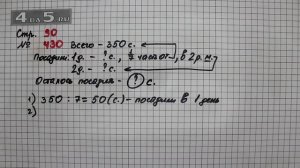 4 ДА 5.РУ
Стр. 90
№ 430 Всего – 350 с.
Посадили: 1д. – ? с., 1/7 часть от, в 2 р. м.
2д. – ? с.
Осталось посадить – ? с.
1) 350 : 7 = 50 (с.) – посадили в 1 день
2)